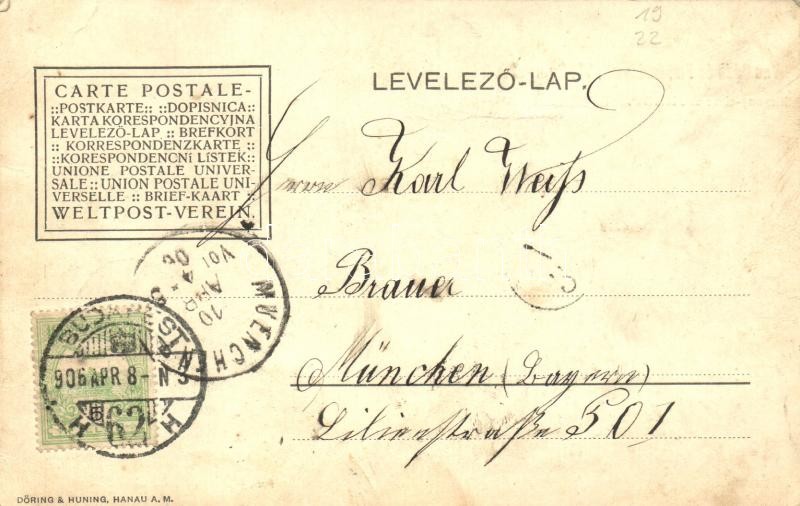 19
22
LEVELEZŐ-LAP.
CARTE POSTALE-
::POSTKARTE:: ::DOPISNICA::
KARTA KORESPONDENCYJNA
LEVELEZŐ-LAP :: BREFKORT
:: KORRESPONDENZKARTE ::
::KORESPONDENCNÍ LÍSTEK::
UNIONE POSTALE UNIVER-
SALE::UNION POSTALE UNI-
VERSELLE :: BRIEF-KAART
WELTPOST-VEREIN.
Herrn Karl Weiß
Brauer
München (Bayern)
Lilienstraße 501
MUENCH
10
APR
VOI
06
BUDAPEST
906 APR 8-N
62
DÖRING & HUNING, HANAU A. M.